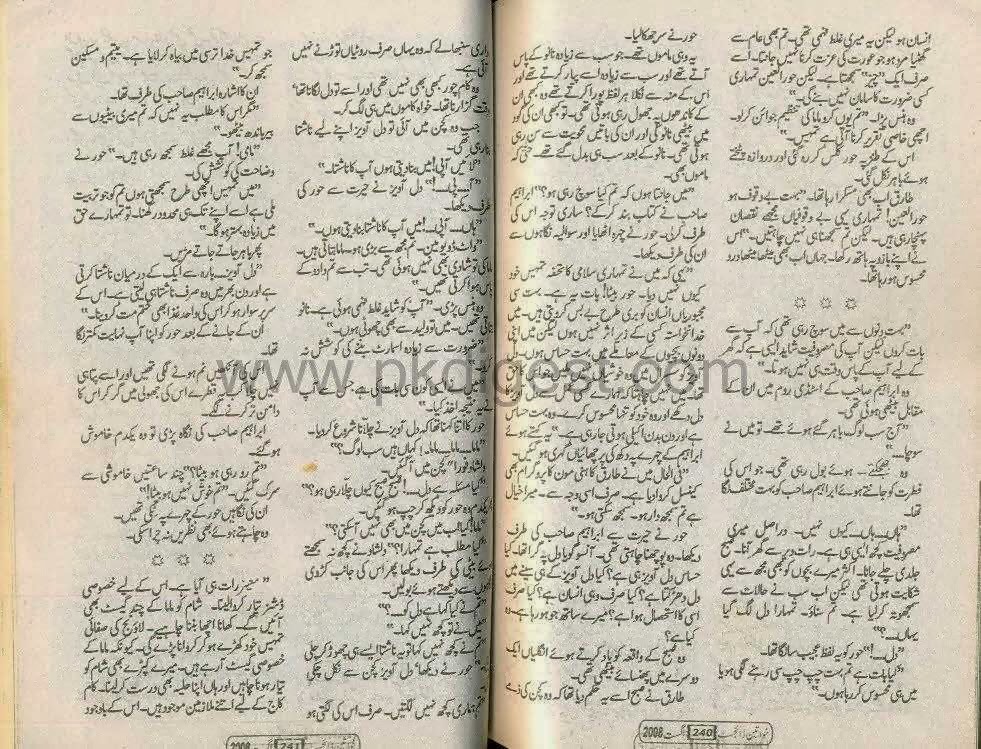 انسان ہو لیکن یہ میری غلط فہمی تھی۔ تم بھی عام سے
گھٹیا مرد ہو جو عورت کی عزت کرنا نہیں جانتا۔ اسے
صرف ایک "چیز" سمجھتا ہے۔ لیکن حور العین تمہاری
کسی ضرورت کا سامان نہیں بنے گی۔"
وہ ہنس پڑا۔ "تم یوں کرو ماما کی تنظیم جوائن کر لو۔
اچھی خاصی تقریر کرنا آتی ہے تمہیں۔"
اس کے طنز پر حور کلس کر رہ گئی اور دروازہ پٹختے
ہوئے باہر نکل گئی۔
طارق اب بھی مسکرا رہا تھا۔ "بہت بے وقوف ہو
حور العین! تمہاری یہی بے وقوفیاں مجھے نقصان
پہنچا رہی ہیں۔ لیکن تم سمجھنا ہی نہیں چاہتیں۔" اس
نے اپنے بازو پہ ہاتھ رکھا۔ جہاں اب بھی میٹھا میٹھا درد
محسوس ہو رہا تھا۔
"بہت دنوں سے میں سوچ رہی تھی کہ آپ سے
بات کروں لیکن آپ کی مصروفیت شاید ایسی ہے کہ گھر
کے لیے آپ کے پاس وقت ہی نہیں ہوتا۔"
وہ ابراہیم صاحب کے اسٹڈی روم میں ان کے
مقابل بیٹھی ہوئی تھی۔
"آج سب لوگ باہر گئے ہوئے تھے۔ تو میں نے
سوچا۔۔۔"
وہ جھجکتے ہوئے بول رہی تھی۔ جو اس کی
فطرت کو جانتے ہوئے ابراہیم صاحب کو بہت مختلف لگا
تھا۔
"ہاں۔۔ ہاں۔۔ کیوں نہیں۔ دراصل میری
مصروفیت کچھ ایسی ہی ہے۔ رات دیر سے گھر آنا۔ صبح
جلدی چلے جانا۔ اکثر میرے بچوں کو بھی مجھ سے یہی
شکایت ہوتی تھی لیکن اب سب نے حالات سے
سمجھوتہ کر لیا ہے۔ تم سناؤ۔ تمہارا دل لگ گیا
یہاں۔۔؟"
"دل۔۔!" حور کو یہ لفظ عجیب سا لگا تھا۔
"کیا بات ہے تم بہت چپ چپ سی رہنے لگی ہو یا
میں ہی محسوس کر رہا ہوں۔"
حور نے سر جھکا لیا۔
یہ وہی ماموں تھے۔ جو سب سے زیادہ نانو کے پاس
آتے تھے اور سب سے زیادہ اسے پیار کرتے تھے اور
اس کے منہ سے نکلا ہر لفظ پورا کرتے تھے وہ بھی ان
کے کاندھوں پہ جھول رہی ہوتی تھی۔ تو کبھی ان کی گود
میں بیٹھی نانو کی اور ان کی باتیں محویت سے سن رہی
ہوتی تھی۔ نانو کے بعد سب ہی بدل گئے تھے۔ حتیٰ کہ
ماموں بھی۔
"میں جانتا ہوں کہ تم کیا سوچ رہی ہو؟" ابراہیم
صاحب نے کتاب بند کر کے ساری توجہ اس کی
طرف کر لی۔ حور نے چہرہ اٹھایا اور سوالیہ نگاہوں سے
ان کی طرف دیکھا۔
"یہی کہ میں نے تمہاری سلامی کا تحفہ تمہیں خود
کیوں نہیں دیا۔ حور بیٹا! بات یہ ہے۔ بہت سی
مجبوریاں انسان کو بری طرح بے بس کر دیتی ہیں۔ میں
خدانخواستہ کسی کے زیر اثر نہیں ہوں لیکن میں اپنی
دونوں بچیوں کے معاملے میں بہت حساس ہوں۔
دل دکھے اور وہ خود کو تنہا محسوس کرے۔ وہ بہت حساس
ہے اور دن بدن اکیلی ہوتی جا رہی ہے۔" یہ کہتے ہوئے
ابراہیم کے چہرے پہ دکھ کی پرچھائیاں گہری ہو گئیں۔
"فی الحال میں نے طارق کا ہنی مون کا پروگرام بھی
کینسل کروا دیا ہے۔ صرف اسی وجہ سے۔ میرا خیال
ہے تم سمجھدار ہو۔ سمجھ سکتی ہو۔"
حور نے حیرت سے ابراہیم صاحب کی طرف
دیکھا۔ وہ پوچھنا چاہتی تھی۔ آنسو کو دل پہ گرا تھا۔ کیا
حساس دل آویز ہی ہے؟ کیا دل آویز کے ہی سینے میں
دل دھڑکتا ہے؟ کیا صرف وہی انسان ہے؟ کیا صرف
اسی کا استحصال ہوا ہے؟ میرے ساتھ جو ہو رہا ہے۔ وہ
کیا ہے؟
وہ صبح کے واقعہ کو یاد کرتے ہوئے انگلیاں ایک
دوسرے میں پھنسائے بیٹھی تھی۔
طارق نے صبح اسے یہ حکم دیا تھا کہ وہ کچن کی ذمے
خواتین ڈائجسٹ 240 اگست 2008
داری سنبھالے کہ وہ یہاں صرف روٹیاں توڑنے نہیں
آئی ہے۔
وہ کام چور کبھی بھی نہیں تھی اور اسے تو دل لگانا تھا،
وقت گزارنا تھا۔ خواہ کاموں میں ہی لگ کر۔
جب وہ کچن میں آئی تو دل آویز اپنے لیے ناشتا
بنا رہی تھی۔
"لائیں آپی! میں بنا دیتی ہوں آپ کا ناشتا۔"
"آپی۔۔!" دل آویز نے حیرت سے حور کی
طرف دیکھا۔
"ہاں۔۔ آپی۔۔! میں آپ کا ناشتا بنا دیتی ہوں۔"
"واٹ ڈو یو مین۔ تم مجھ سے بڑی ہو۔ ماما بتاتی ہیں۔
ماما کی تو شادی بھی نہیں ہوئی تھی۔ تب سے تم دادو کے
پاس ہوا کرتی تھیں۔"
وہ ہنس پڑی۔ "آپ کو شاید غلط فہمی ہوئی ہے۔ نانو
بتاتی تھیں۔ میں تو ولید سے بھی چھوٹی ہوں۔"
"ضرورت سے زیادہ اسمارٹ بننے کی کوشش نہ
حور کا اتنا کہنا تھا کہ دل آویز نے چلانا شروع کر دیا۔
"ماما۔۔ ماما۔۔ ماما۔! کہاں ہیں سب لوگ؟"
دلشاد فوراً کچن میں آ گئیں۔
"کیا مسئلہ ہے دل۔۔! صبح صبح کیوں چلا رہی ہو؟"
یکدم وہ حور کو دیکھ کر چپ ہو گئیں۔
"ماما! کیا اب میں کچن میں بھی نہیں آ سکتی؟"
"کیا مطلب ہے تمہارا؟" دلشاد نے کچھ نہ سمجھتے
ہوئے بیٹی کی طرف دیکھا پھر اس کی جانب کڑوی
نگاہوں سے دیکھتے ہوئے بولیں۔
"تم نے کیا کہا ہے دل کو۔۔؟"
"میں نے تو کچھ نہیں کہا۔"
"تم نے کچھ نہیں کہا تو یہ ناشتا ایسے ہی چھوڑ کر چلی
" حور نے دیکھا، دل آویز کچن سے نکل چکی
تھی۔
"تم ہماری کچھ نہیں لگتیں۔ صرف اس کی لگتی ہو
جو تمہیں خدا ترسی میں بیاہ کر لایا ہے۔ یتیم و مسکین
سمجھ کر۔"
ان کا اشارہ ابراہیم صاحب کی طرف تھا۔
"مگر اس کا مطلب یہ نہیں کہ تم میری بیٹیوں سے
بیر باندھ بیٹھو۔"
"مامی! آپ مجھے غلط سمجھ رہی ہیں۔" حور نے
وضاحت کی کوشش کی۔
"میں تمہیں اچھی طرح سمجھتی ہوں تم کو جو تربیت
ملی ہے اسے اپنے تک ہی محدود رکھنا۔ تو تمہارے حق
میں زیادہ بہتر ہو گا۔"
پھر باہر جاتے جاتے مڑیں۔
"دل آویز۔ بارہ سے ایک کے درمیان ناشتا کرتی
ہے اور دن بھر میں وہ صرف ناشتا ہی لیتی ہے۔ اس کے
سر پر سوار ہو کر اس کی واحد غذا بھی ختم مت کر دینا۔"
ان کے جانے کے بعد حور کو اپنا آپ نہایت کمتر لگا
تھا۔
اس کی آنکھیں نم ہونے لگی تھیں اور اسے پتا ہی
نہیں چلا کب یہ قطرے اس کی جھولی میں گر کر اس کا
دامن تر کرنے لگے۔
ابراہیم صاحب کی نگاہ پڑی تو وہ یکدم خاموش
ہو گئے۔
"تم رو رہی ہو بیٹا؟" چند ساعتیں خاموشی سے
سرک گئیں۔ "تم خوش نہیں ہو بیٹا!"
ان کی نگاہیں حور کے چہرے پہ ٹکی تھیں۔
وہ چاہتے ہوئے بھی نظریں نہ چرا سکی۔
"سنیئر رات ہی آیا ہے۔ اس کے لیے خصوصی
ڈشنر تیار کروا لینا۔ شام کو ماما کے چند گیسٹ بھی
آئیں گے۔ کھانا اچھا بننا چاہیے۔ لاؤنج کی صفائی
تمہیں خود کھڑے ہو کر کروانا پڑے گی۔ کیونکہ ماما کے
خصوصی گیسٹ آ رہے ہیں۔ میرے کپڑے بھی شام کو
تیار ہونا چاہئیں اور ہاں اپنا حلیہ بھی درست کر لینا۔ کام
کاج کے لیے اتنے ملازمین موجود ہیں۔ اس کے باوجود
خواتین ڈائجسٹ 241 اگست 2008
www.pkdigest.com